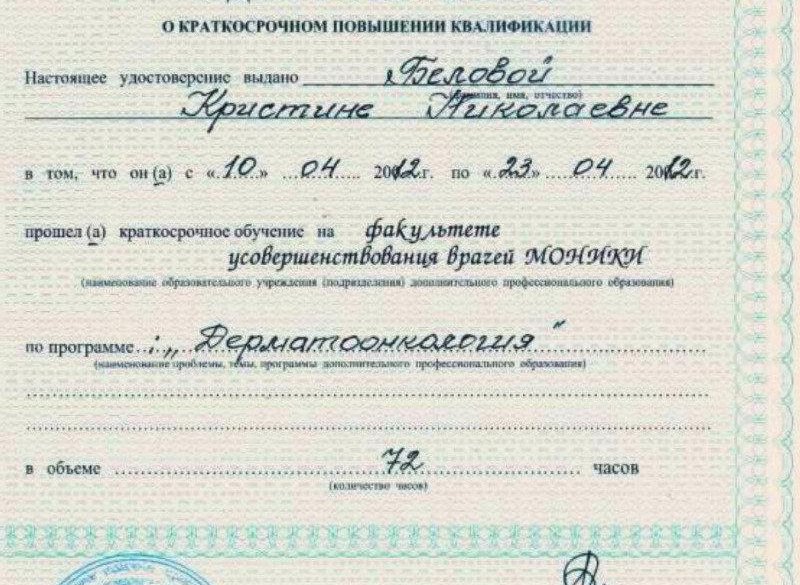 О КРАТКОСРОЧНОМ ПОВЫШЕНИИ КВАЛИФИКАЦИИ
Настоящее удостоверение выдано Беловой
(фамилия, имя, отчество)
Кристине Николаевне
в том, что он(а) с «10» 04 2012г. по «23» 04 2012г.
прошел (а) краткосрочное обучение на факультете
усовершенствования врачей МОНИКИ
(наименование образовательного учреждения (подразделения) дополнительного профессионального образования)
по программе: „Дерматоонкология"
(наименование проблемы, темы, программы дополнительного профессионального образования)
в объеме 72 часов
(количество часов)